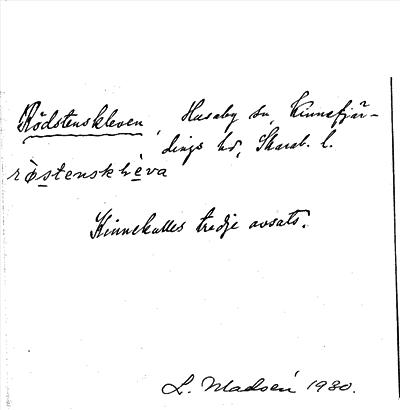 Rödstenskleven, Husaby sn, Kinnefjär-
dings hd, Skarab. l.
røstensklèva
Kinnekulles tredje avsats.
L. Madsén 1930.